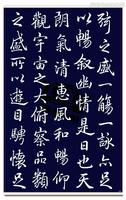 弦之盛一觴一詠亦足
以暢敘幽情是日也天
朗氣清惠風和暢仰
觀宇宙之大俯察品類
之盛所以遊目騁懷足